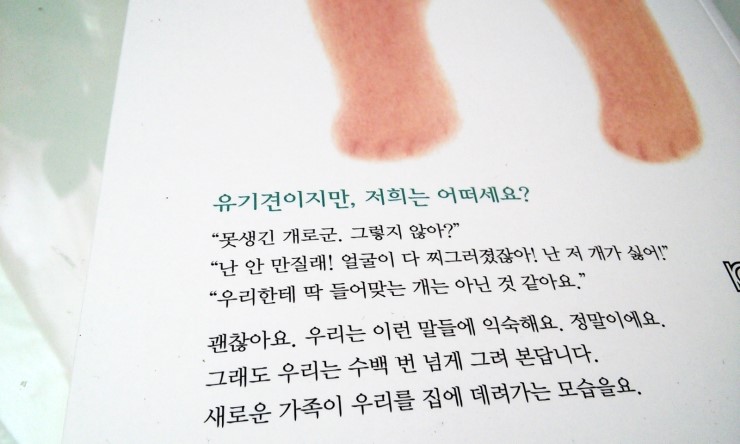 유기견이지만, 저희는 어떠세요?
“못생긴 개로군. 그렇지 않아?”
“난 안 만질래! 얼굴이 다 찌그러졌잖아! 난 저 개가 싫어!”
“우리한테 딱 들어맞는 개는 아닌 것 같아요.”
괜찮아요. 우리는 이런 말들에 익숙해요. 정말이에요.
그래도 우리는 수백 번 넘게 그려 본답니다.
새로운 가족이 우리를 집에 데려가는 모습을요.